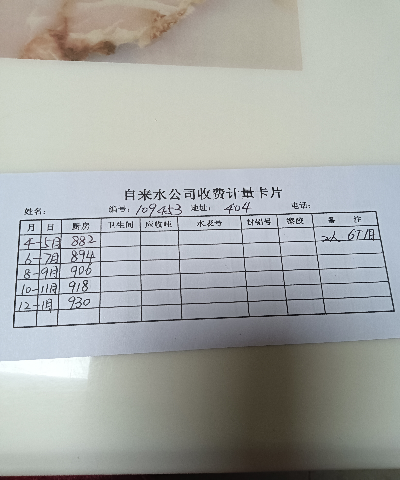 自来水公司收费计量卡片
姓名: 编号: 109453 地址: 404 电话:
月 日 厨房 卫生间 应收吨 水表号 封铅号 备 注
4-5月 882 2人 6T/月
6-7月 894
8-9月 906
10-11月 918
12-1月 930